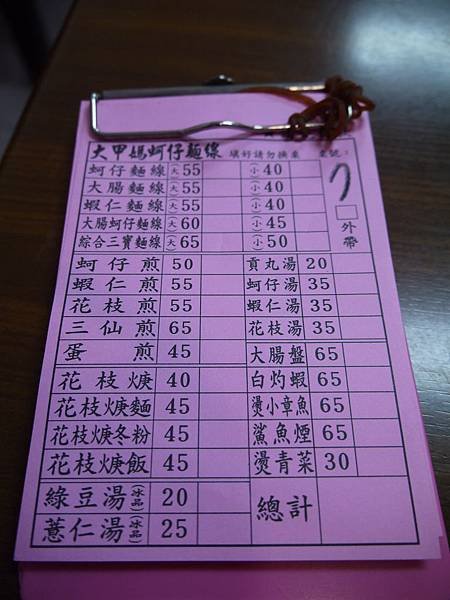 大甲媽蚵仔麵線 填好請勿換桌 桌號：
蚵仔麵線(大) 55 (小) 40
大腸麵線(大) 55 (小) 40
蝦仁麵線(大) 55 (小) 40
大腸蚵仔麵線(大) 60 (小) 45
綜合三寶麵線(大) 65 (小) 50
7
外帶
蚵仔煎 50 貢丸湯 20
蝦仁煎 55 蚵仔湯 35
花枝煎 55 蝦仁湯 35
三仙煎 65 花枝湯 35
蛋煎 45 大腸盤 65
花枝焿 40 白灼蝦 65
花枝焿麵 45 燙小章魚 65
花枝焿冬粉 45 鯊魚煙 65
花枝焿飯 45 燙青菜 30
綠豆湯(冰品) 20 總計
薏仁湯(冰品) 25